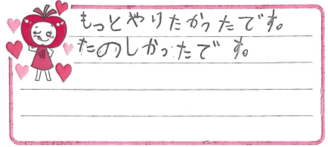 もっとやりたかったです。
たのしかったです。